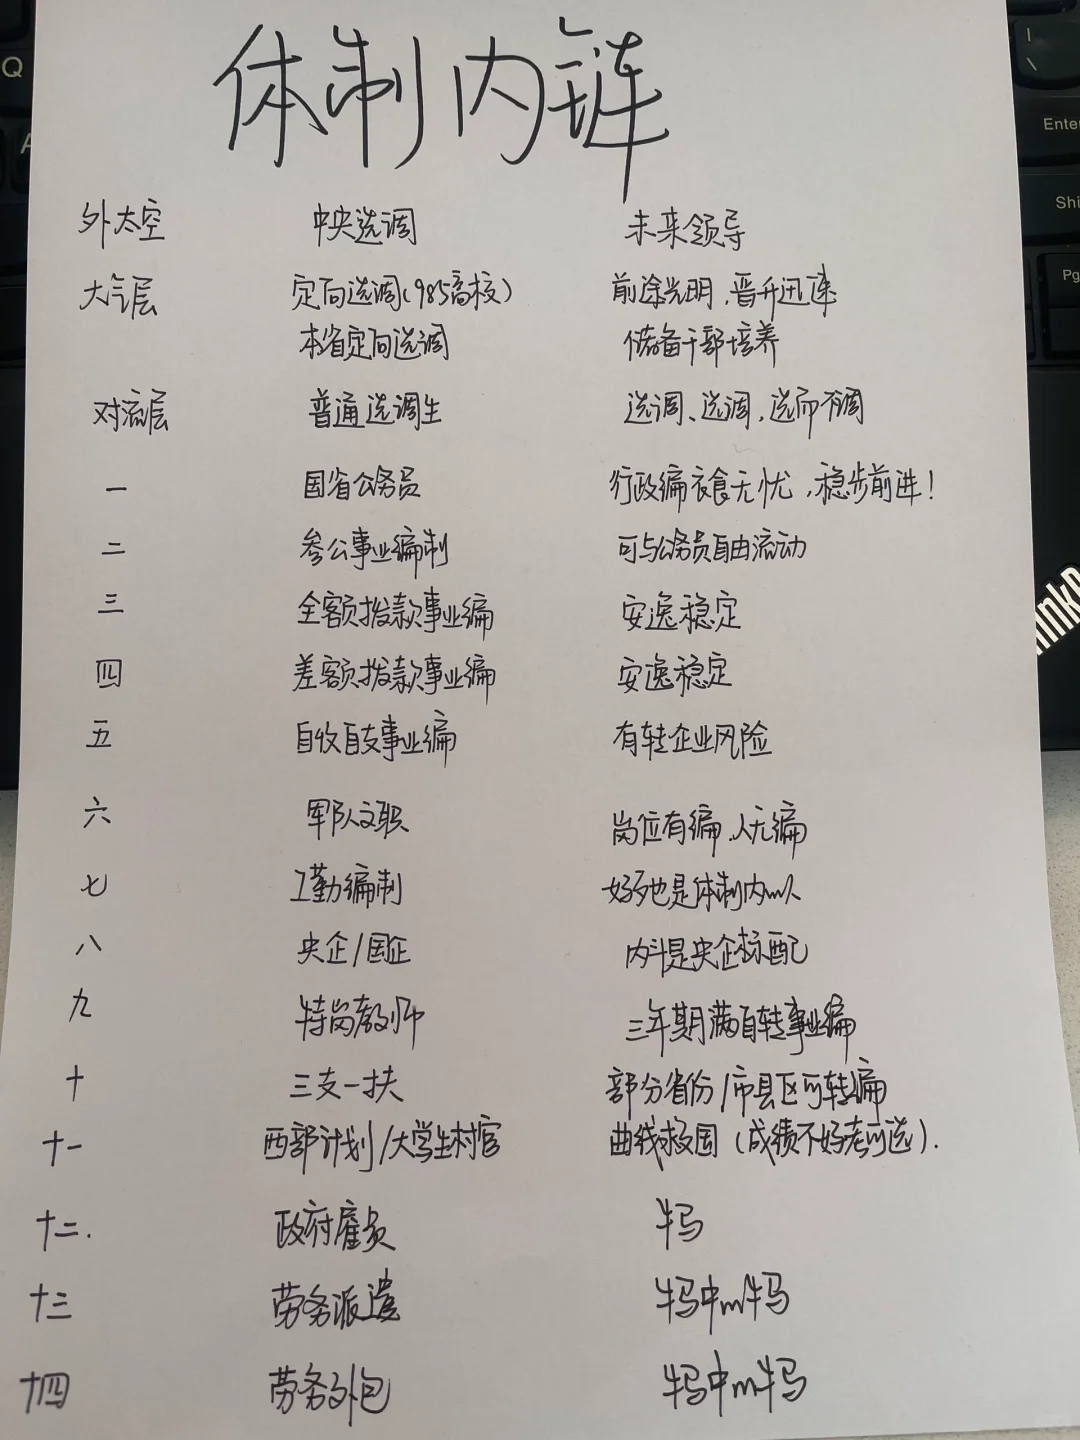 体制内链
外太空 中央选调 未来领导
大气层 定向选调(985高校) 前途光明,晋升迅速
本省定向选调 储备干部培养
对流层 普通选调生 选调、选调,选而不调
一 国省公务员 行政编衣食无忧,稳步前进!
二 参公事业编制 可与公务员自由流动
三 全额拨款事业编 安逸稳定
四 差额拨款事业编 安逸稳定
五 自收自支事业编 有转企业风险
六 军队文职 岗位有编,人无编
七 工勤编制 好歹也是体制内m人
八 央企/国企 内斗是央企标配
九 特岗教师 三年期满自转事业编
十 三支一扶 部分省份/市县区可转编
十一 西部计划/大学生村官 曲线救国(成绩不好者可选).
十二. 政府雇员 牛马
十三 劳务派遣 牛马中m牛马
十四 劳务外包 牛马中m牛马
Q
A
Enter
Shi
Pg
inkP